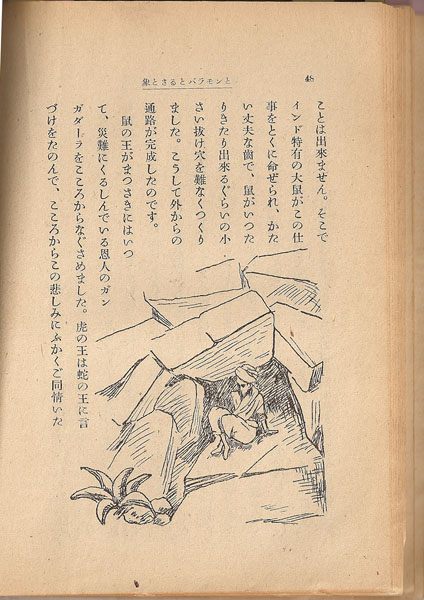 48
象とさるとバラモンと
ことは出來ません。そこで
インド特有の大鼠がこの仕
事をとくに命ぜられ、かた
い丈夫な齒で、鼠がいつた
りきたり出來るぐらいの小
さい拔け穴を難なくつくり
ました。こうして外からの
通路が完成したのです。
鼠の王がまつさきにはいつ
て、災難にくるしんでいる恩人のガン
ガダーラをこころからなぐさめました。虎の王は蛇の王に言
づけをたのんで、こころからこの悲しみにふかくご同情いた